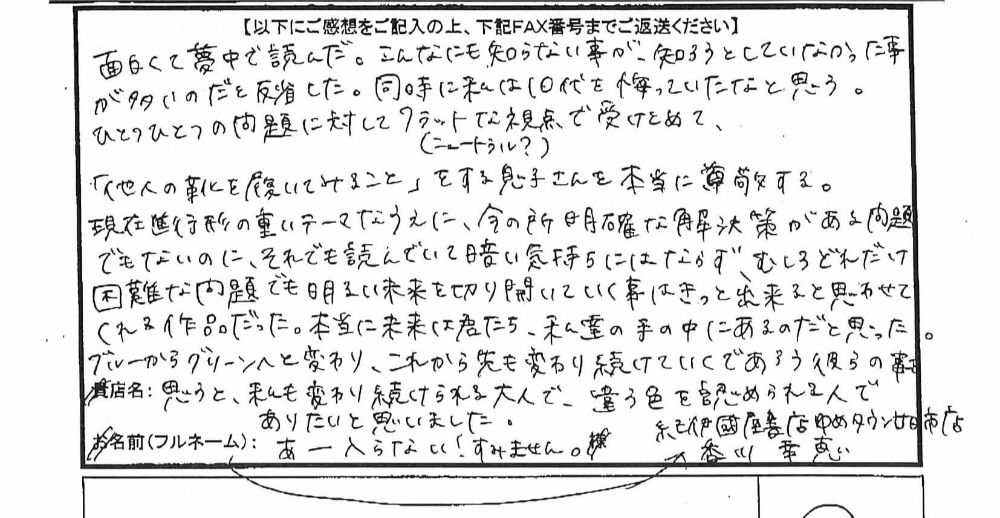 【以下にご感想をご記入の上、下記FAX番号までご返送ください】
面白くて夢中で読んだ。こんなにも知らない事が、知ろうとしていなかった事
が多いのだと反省した。同時に私は10代を侮っていたなと思う。
ひとつひとつの問題に対してフラットな視点で受けとめて、
(ニュートラル?)
「他人の靴を履いてみること」をする息子さんを本当に尊敬する。
現在進行形の重いテーマなうえに、今の所明確な解決策がある問題
でもないのに、それでも読んでいて暗い気持ちにはならず、むしろどれだけ
困難な問題でも明るい未来を切り開いていく事はきっと出来ると思わせて
くれる作品だった。本当に未来は君たち、私達の手の中にあるのだと思った。
ブルーからグリーンへと変わり、これから先も変わり続けていくであろう彼らの事を
貴店名: 思うと、私も変わり続けられる大人で、違う色を認められる人で
ありたいと思いました。
紀伊國屋書店ゆめタウン廿日市店
お名前(フルネーム): あー入らない!すみません。様
香川 幸恵